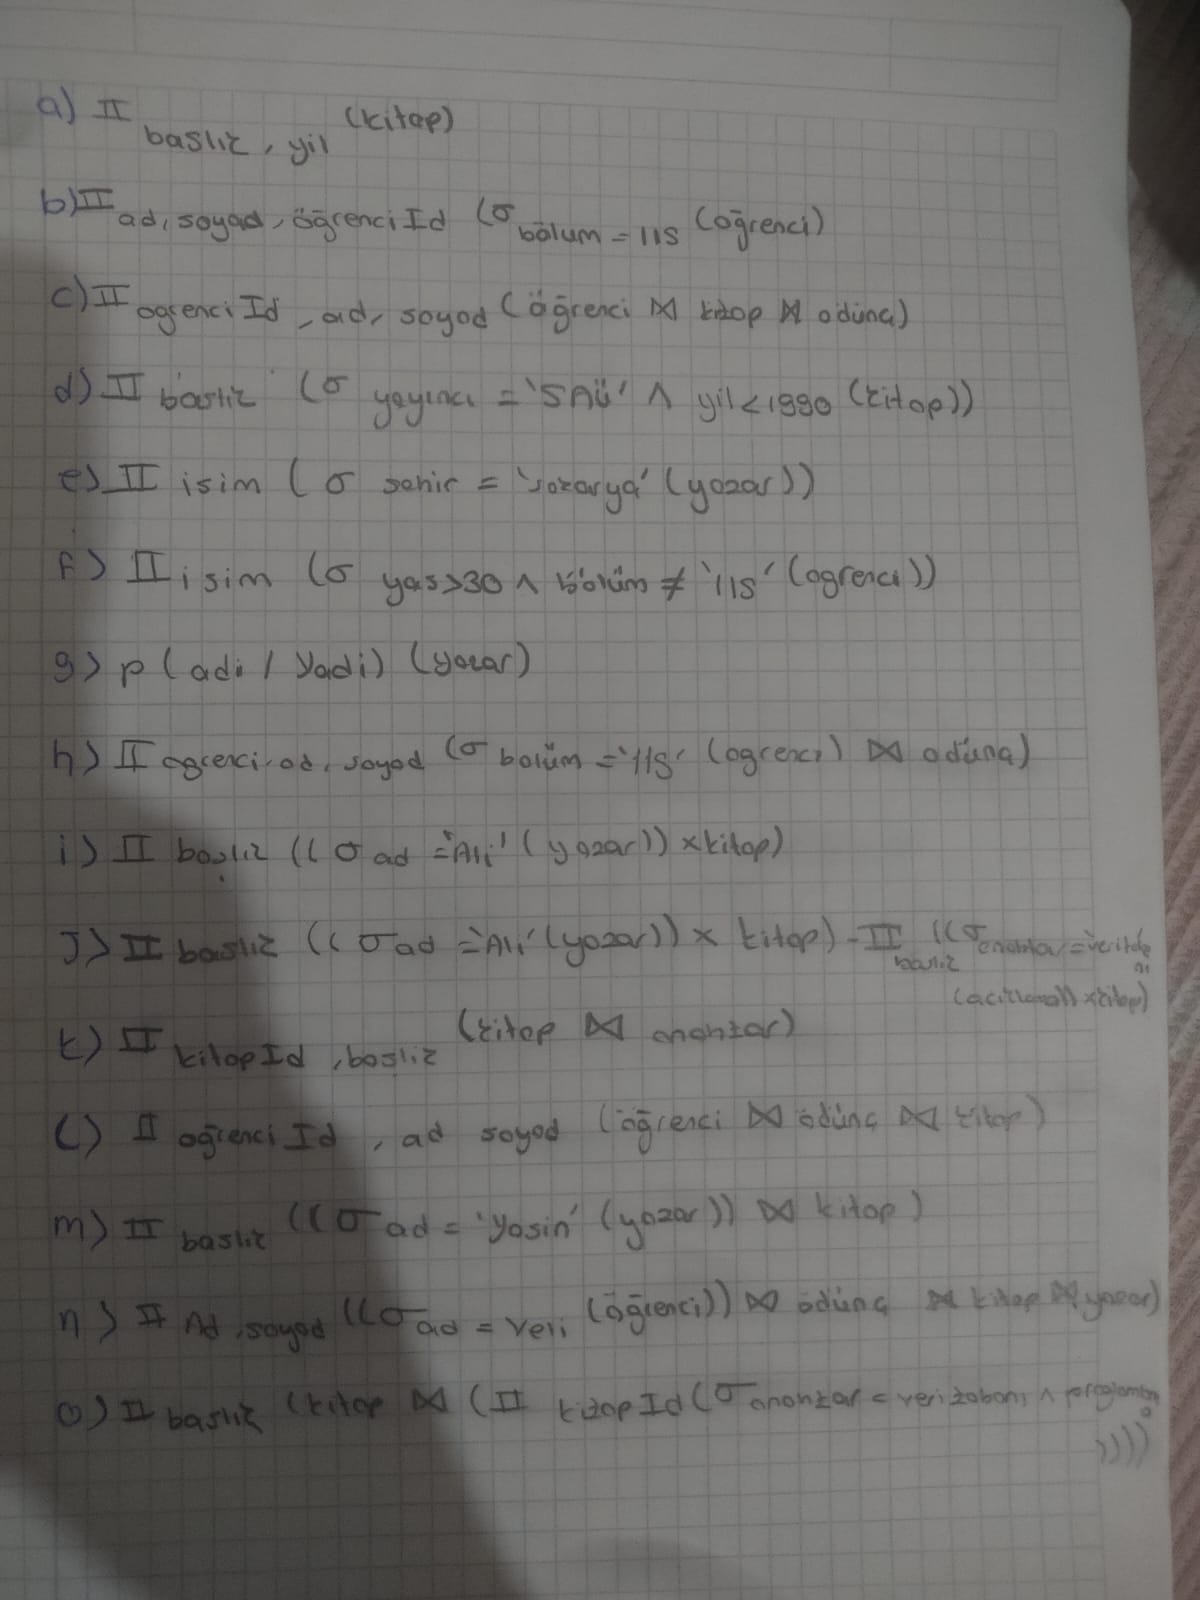 a) Π baslık, yil (kitap)
b) Π ad, soyad, öğrenci Id (σ bölum = IIS (öğrenci)
c) Π ogrenci Id, ad, soyad (öğrenci ⋈ kitap ⋈ ödünç)
d) Π baslık (σ yayıncı = 'SAÜ' ∧ yil < 1990 (kitap))
e) Π isim (σ sehir = 'sakarya' (yazar))
f) Π isim (σ yas > 30 ∧ bölüm ≠ 'IIS' (ogrenci))
g) p (adi / Yadi) (yazar)
h) Π ogrenci.ad, soyad (σ bolüm = 'IIS' (ogrenci) ⋈ ödünç)
i) Π başlık ((σ ad = 'Ali' (yazar)) × kitap)
J) Π baslik ((σ ad = 'Ali' (yazar)) × kitap) - Π baslık ((σ
× kitap)
k) Π kitap Id, baslik (kitap ⋈ anahtar)
l) Π oğrenci Id, ad soyad (öğrenci ⋈ ödünç ⋈ kitap)
m) Π baslık ((σ ad = 'Yasin' (yazar)) ⋈ kitap)
n) Π Ad, soyad ((σ ad = Veli (öğrenci)) ⋈ ödünç ⋈ kitap ⋈ yazar)
o) Π baslık (kitap ⋈ (Π kitap Id (σ anahtar = veritabanı ∧
))))